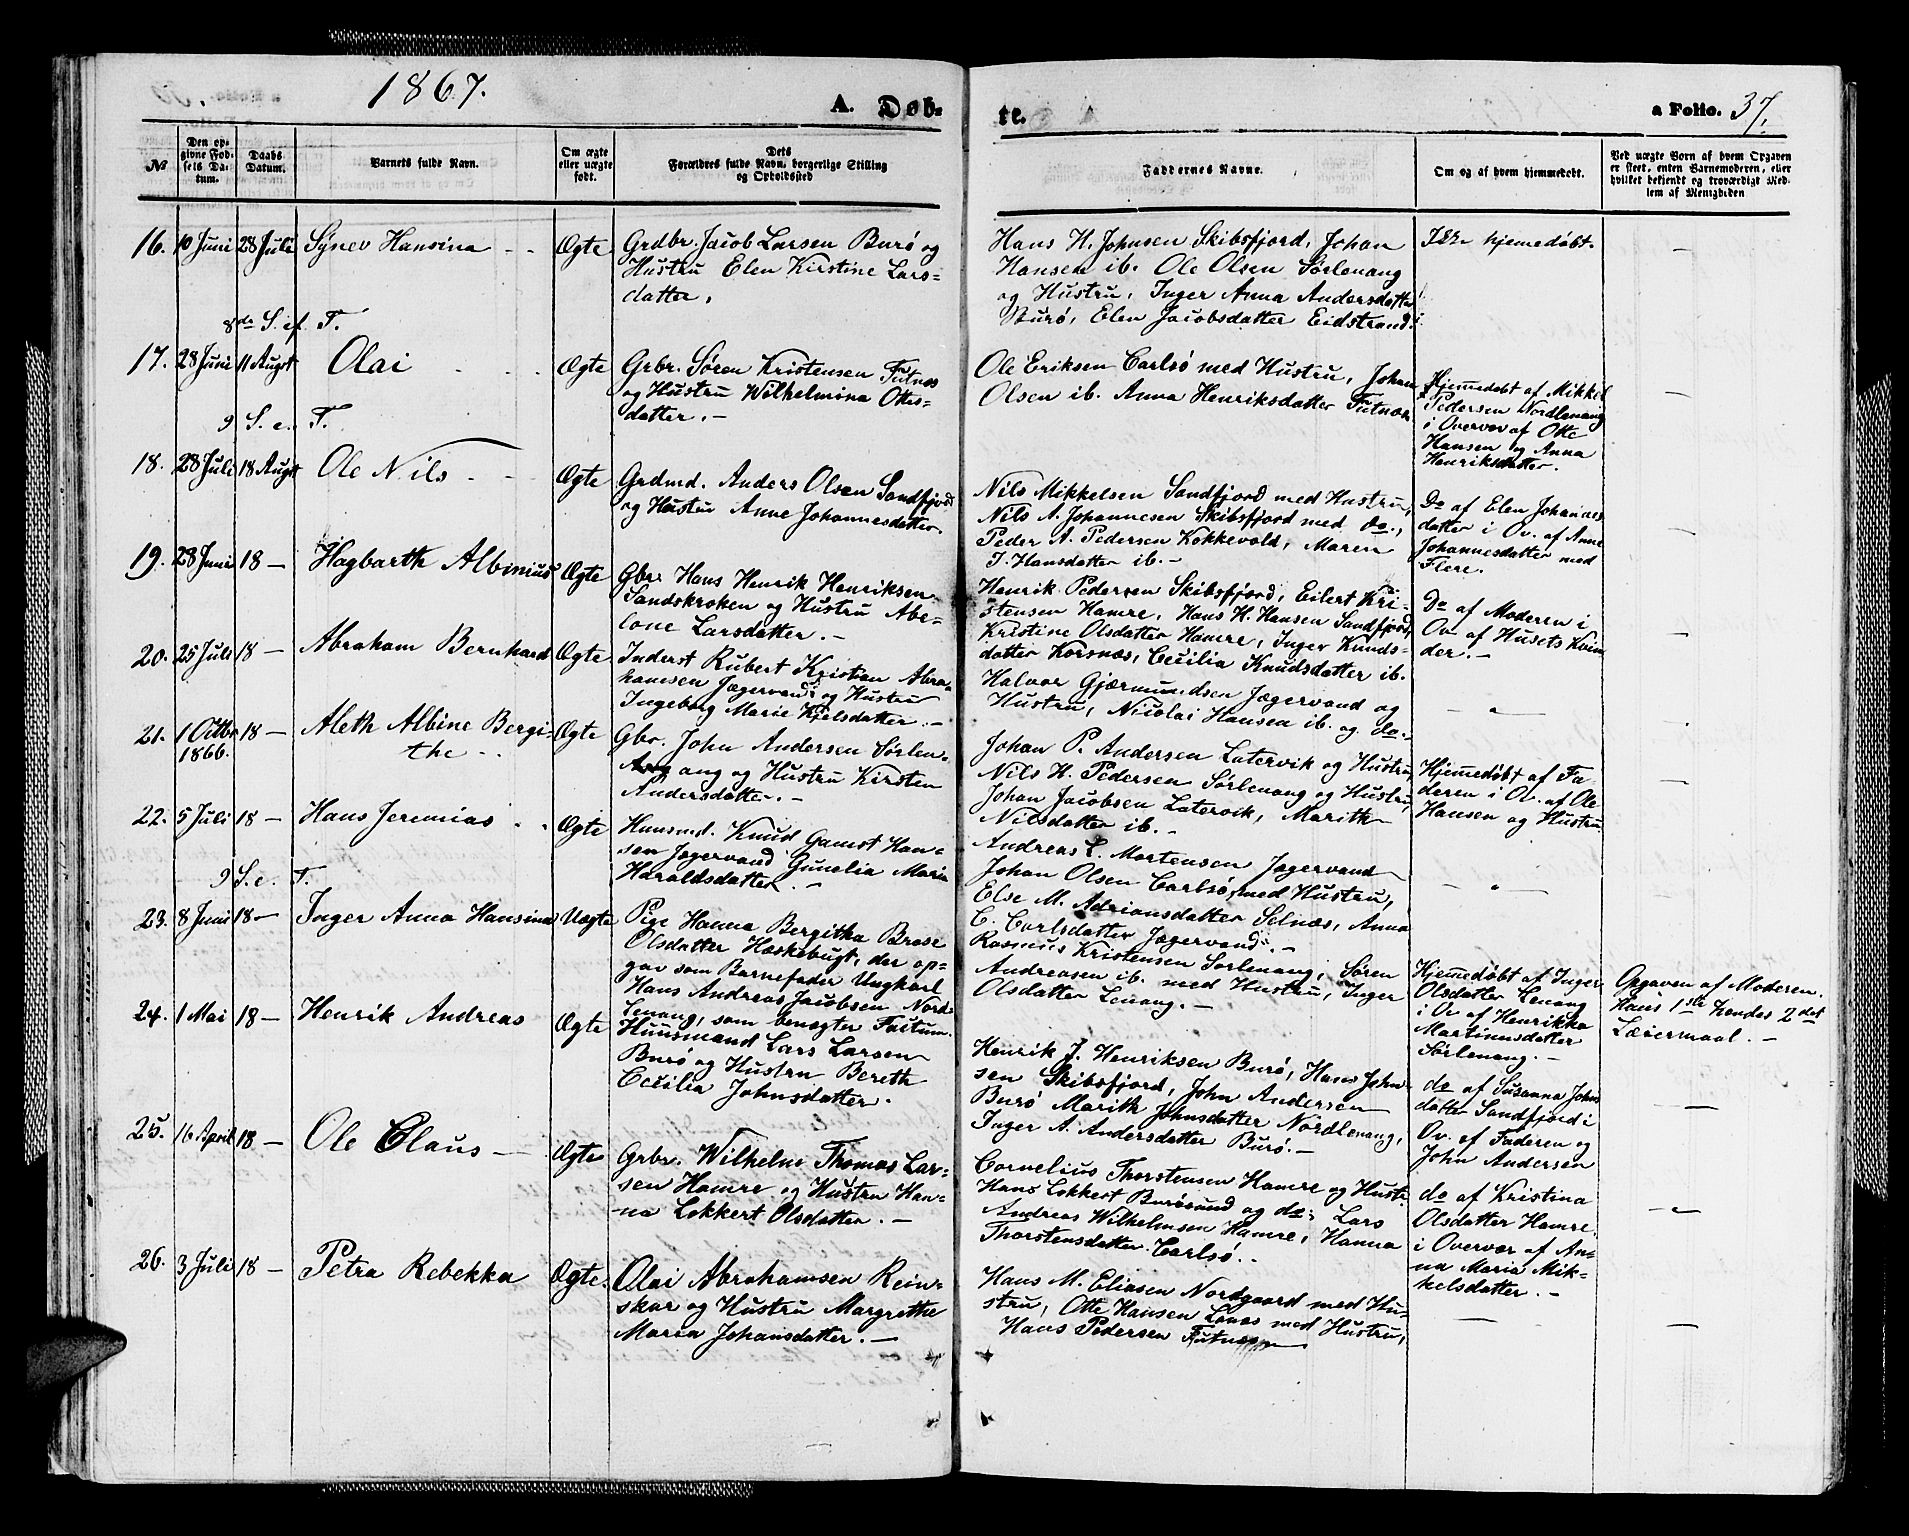 1867.
A. Døb-
te.
a Folio. 37.
No
Den op-
givne Fød-
sels Da-
tum.
Daabs
Datum.
Barnets fulde Navn.
Om ægte
eller uægte
født.
Dets
Forældres fulde Navn, borgerlige Stilling
og Opholdssted
Faddernes Navne.
Om og af hvem hjemmedøbt.
Ved uægte Børn af hvem Opgaven
er skeet, enten Barnemoderen, eller
hvilket bekjendt og troværdigt Med-
lem af Menigheden
16. 10 Juni 28 Juli Synev Hansina - - Ægte
Grdbr. Jacob Larsen Burø og
Hustru Elen Kirstine Lars-
datter.
Hans H. Johnsen Skibsfjord, Johan
Hansen ib. Ole Olsen Sørlenang
og Hustru, Inger Anna Andersdatter
Burø, Elen Jacobsdatter Eidstrand.
Ikke hjemedøbt.
—
8de S. ef. T.
17. 28 Juni 11 August Olai - - - Ægte
Grbr. Søren Kristensen Futnæs
og Hustru Wilhelmina Ottes-
datter. —
Ole Eriksen Carlsø med Hustru, Johan
Olsen ib. Anna Henriksdatter Futnæs
Hjemedøbt af Mikkel
Pedersen Nordlenang
i Overvær af Otte
Hansen og Anna
Henriksdatter.
—
9 S. e. T.
18. 28 Juli 18 August Ole Nils - - Ægte
Grdmd. Anders Olsen Sandfjord
og Hustru Anne Johannesdatter.
Nils Mikkelsen Sandfjord med Hustru,
Nils A. Johannesen Skibsfjord med do.,
Peder A. Pedersen Kokkevold, Maren
J. Hansdatter ib. —
Do af Elen Johannes
datter i Ov. af Anne
Johannesdatter med
Flere.
—
19. 28 Juni 18 — Hagbarth Albinius Ægte
Gbr. Hans Henrik Henriksen
Sandskroken og Hustru Abe-
lone Larsdatter. —
Henrik Pedersen Skibsfjord, Eilert Kri-
stensen Hamre, Hans H. Hansen Sandfjord,
Kristine Olsdatter Hamre, Inger Knuds-
datter Korsnæs, Cecilia Knudsdatter ib.
Do af Moderen i
Ov. af Husets Kvin
der. —
—
20. 25 Juli 18 — Abraham Bernhard Ægte
Inderst Rubert Kristian Abra-
hamsen Jægervand og Hustru
Ingeborg Marie Kjelsdatter. —
Halvor Gjærmundsen Jægervand og
Hustru, Nicolai Hansen ib. og do.
— " —
21. 1 Octbr 1866. 18 — Aleth Albine Bergi-
the - - Ægte
Gbr. John Andersen Sørlen-
ang og Hustru Kirsten
Andersdatter. —
Johan P. Andersen Latervik og Hustru,
Nils H. Pedersen Sørlenang og Hustru,
Johan Jacobsen Latervik, Marith
Nilsdatter ib. —
Hjemedøbt af Fa-
deren i Ov. af Ole
Hansen og Hustru
—
22. 5 Juli 18 — Hans Jeremias - - Ægte
Huusmd. Knud Gamst Han-
sen Jægervand Gunelia Maria
Haraldsdatter. —
Andreas L. Mortensen Jægervand
Johan Olsen Carlsø, med Hustru,
Else M. Adriansdatter Selnæs, Anna
C. Carlsdatter Jægervand. —
— " —
9 S. e. T.
23. 8 Juni 18 — Inger Anna Hansina Uægte
Pige Hanna Bergitha Brose
Olsdatter Haskebugt, der op-
gav som Barnefader Ungkarl
Hans Andreas Jacobsen Nord
Lenang, som benægter Factum.
Rasmus Kristensen Sørlenang, Søren
Andreasen ib. med Hustru, Inger
Olsdatter Lenang. —
Hjemedøbt af Inger
Olsdatter Lenang
i Ov. af Henrikka
Martinusdatter
Sørlenang. —
Opgaven af Moderen.
Hans 1ste Hendes 2det
Leiermaal. —
24. 1 Mai 18 — Henrik Andreas Ægte
Huusmand Lars Larsen
Burø og Hustru Bereth
Cecilia Johnsdatter.
Henrik J. Henriksen Burø, Hans John-
sen Skibsfjord, John Andersen
Burø Marith Johnsdatter Nordlenang,
Inger A. Andersdatter Burø. —
do af Susanna Johns
datter Sandfjord i
Ov. af Faderen og
John Andersen
—
25. 16 April 18 — Ole Claus — Ægte
Grbr. Wilhelm Thomas Lar-
sen Hamre og Hustru Han-
na Lokkert Olsdatter. —
Cornelius Thorstensen Hamre og Hustr.
Hans Lokkert Burøsund og do; Lars
Andreas Wilhelmsen Hamre, Hanna
Thorstensdatter Carlsø. -
do af Kristina
Olsdatter Hamre
i Overvær af An-
na Maria Mik-
kelsdatter. —
—
26. 3 Juli 18 — Petra Rebekka Ægte.
Olai Abrahamsen Rein-
skar og Hustru Margrethe
Maria Johansdatter. —
Hans M. Eliasen Nordgaard med Hu-
stru, Otte Hansen Lanæs med Hustru,
Hans Pedersen Futnæs
—
—